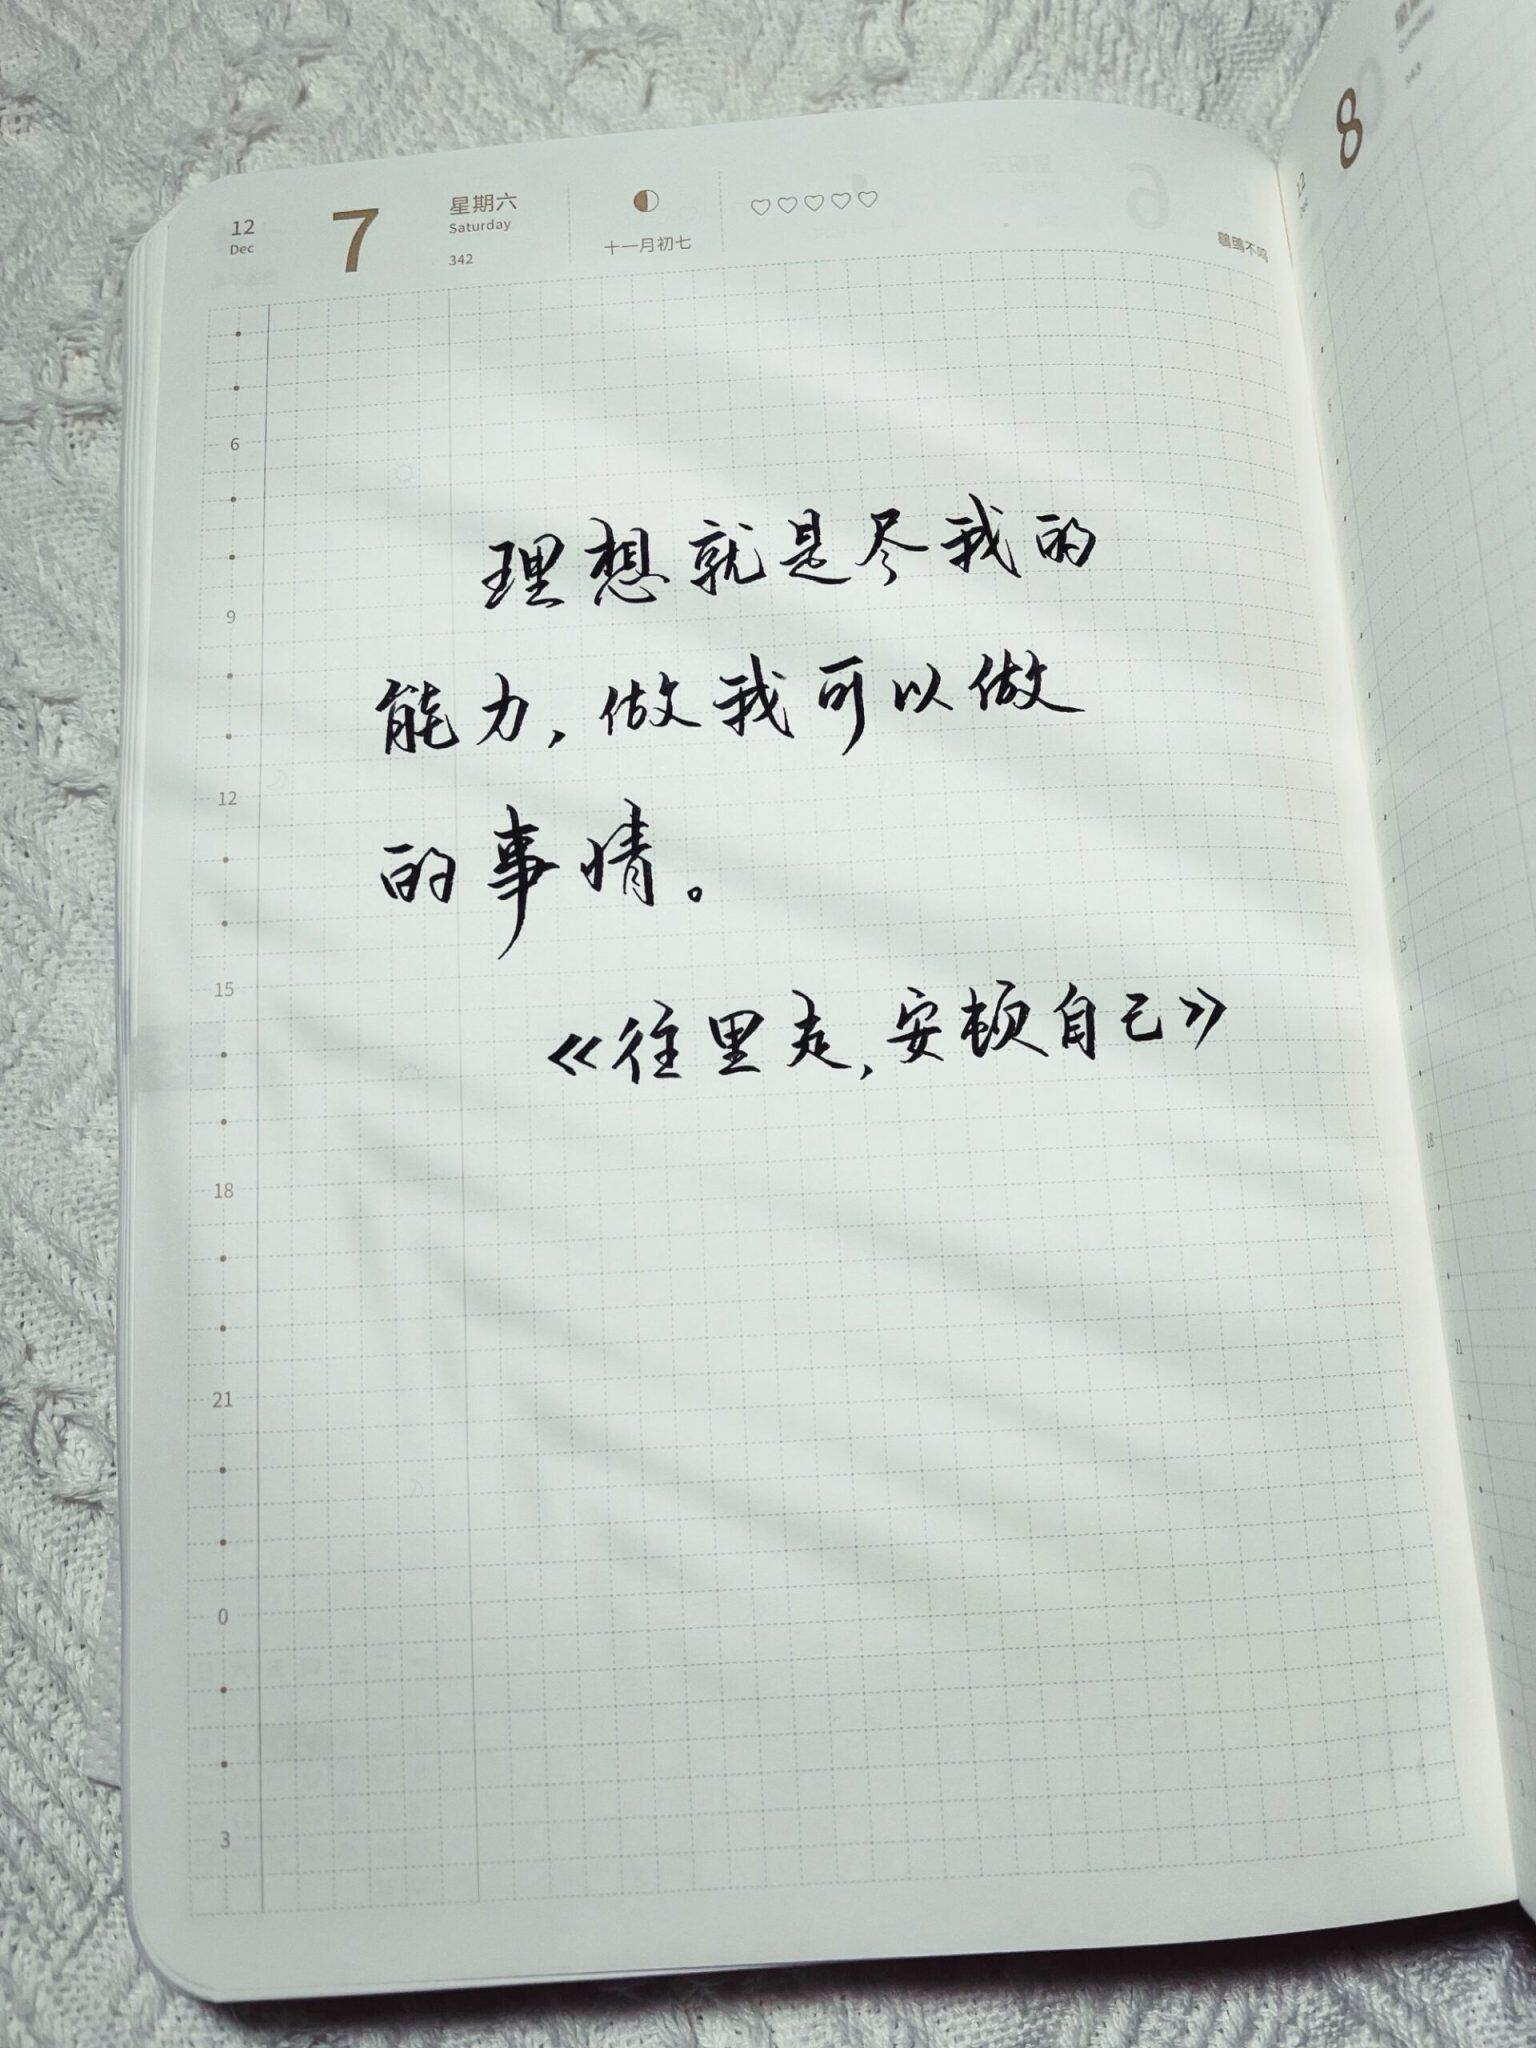 12
Dec
7
星期六
Saturday
342
十一月初七
鹖鴠不鸣
6
9
12
15
18
21
0
3
理想就是尽我的
能力,做我可以做
的事情。
《往里走,安顿自己》
8
12
15
18
21
0